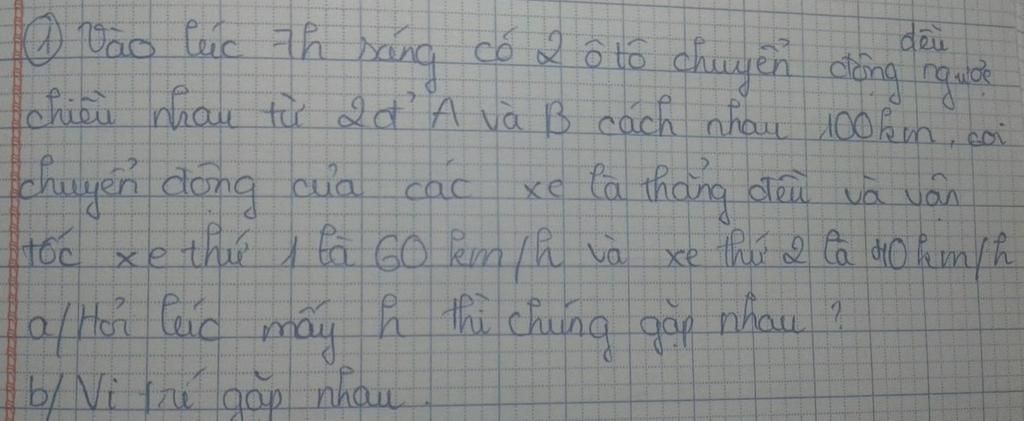 ① Vào lúc 7h sáng có 2 ô tô chuyển động đều ngược
chiều nhau từ 2đ' A và B cách nhau 100km, coi
chuyển động của các xe là thẳng đều và vân
tốc xe thứ 1 là 60 km/h và xe thứ 2 là 40 km/h
a/ Hỏi lúc mấy h thì chúng gặp nhau ?
b/ Vị trí gặp nhau.